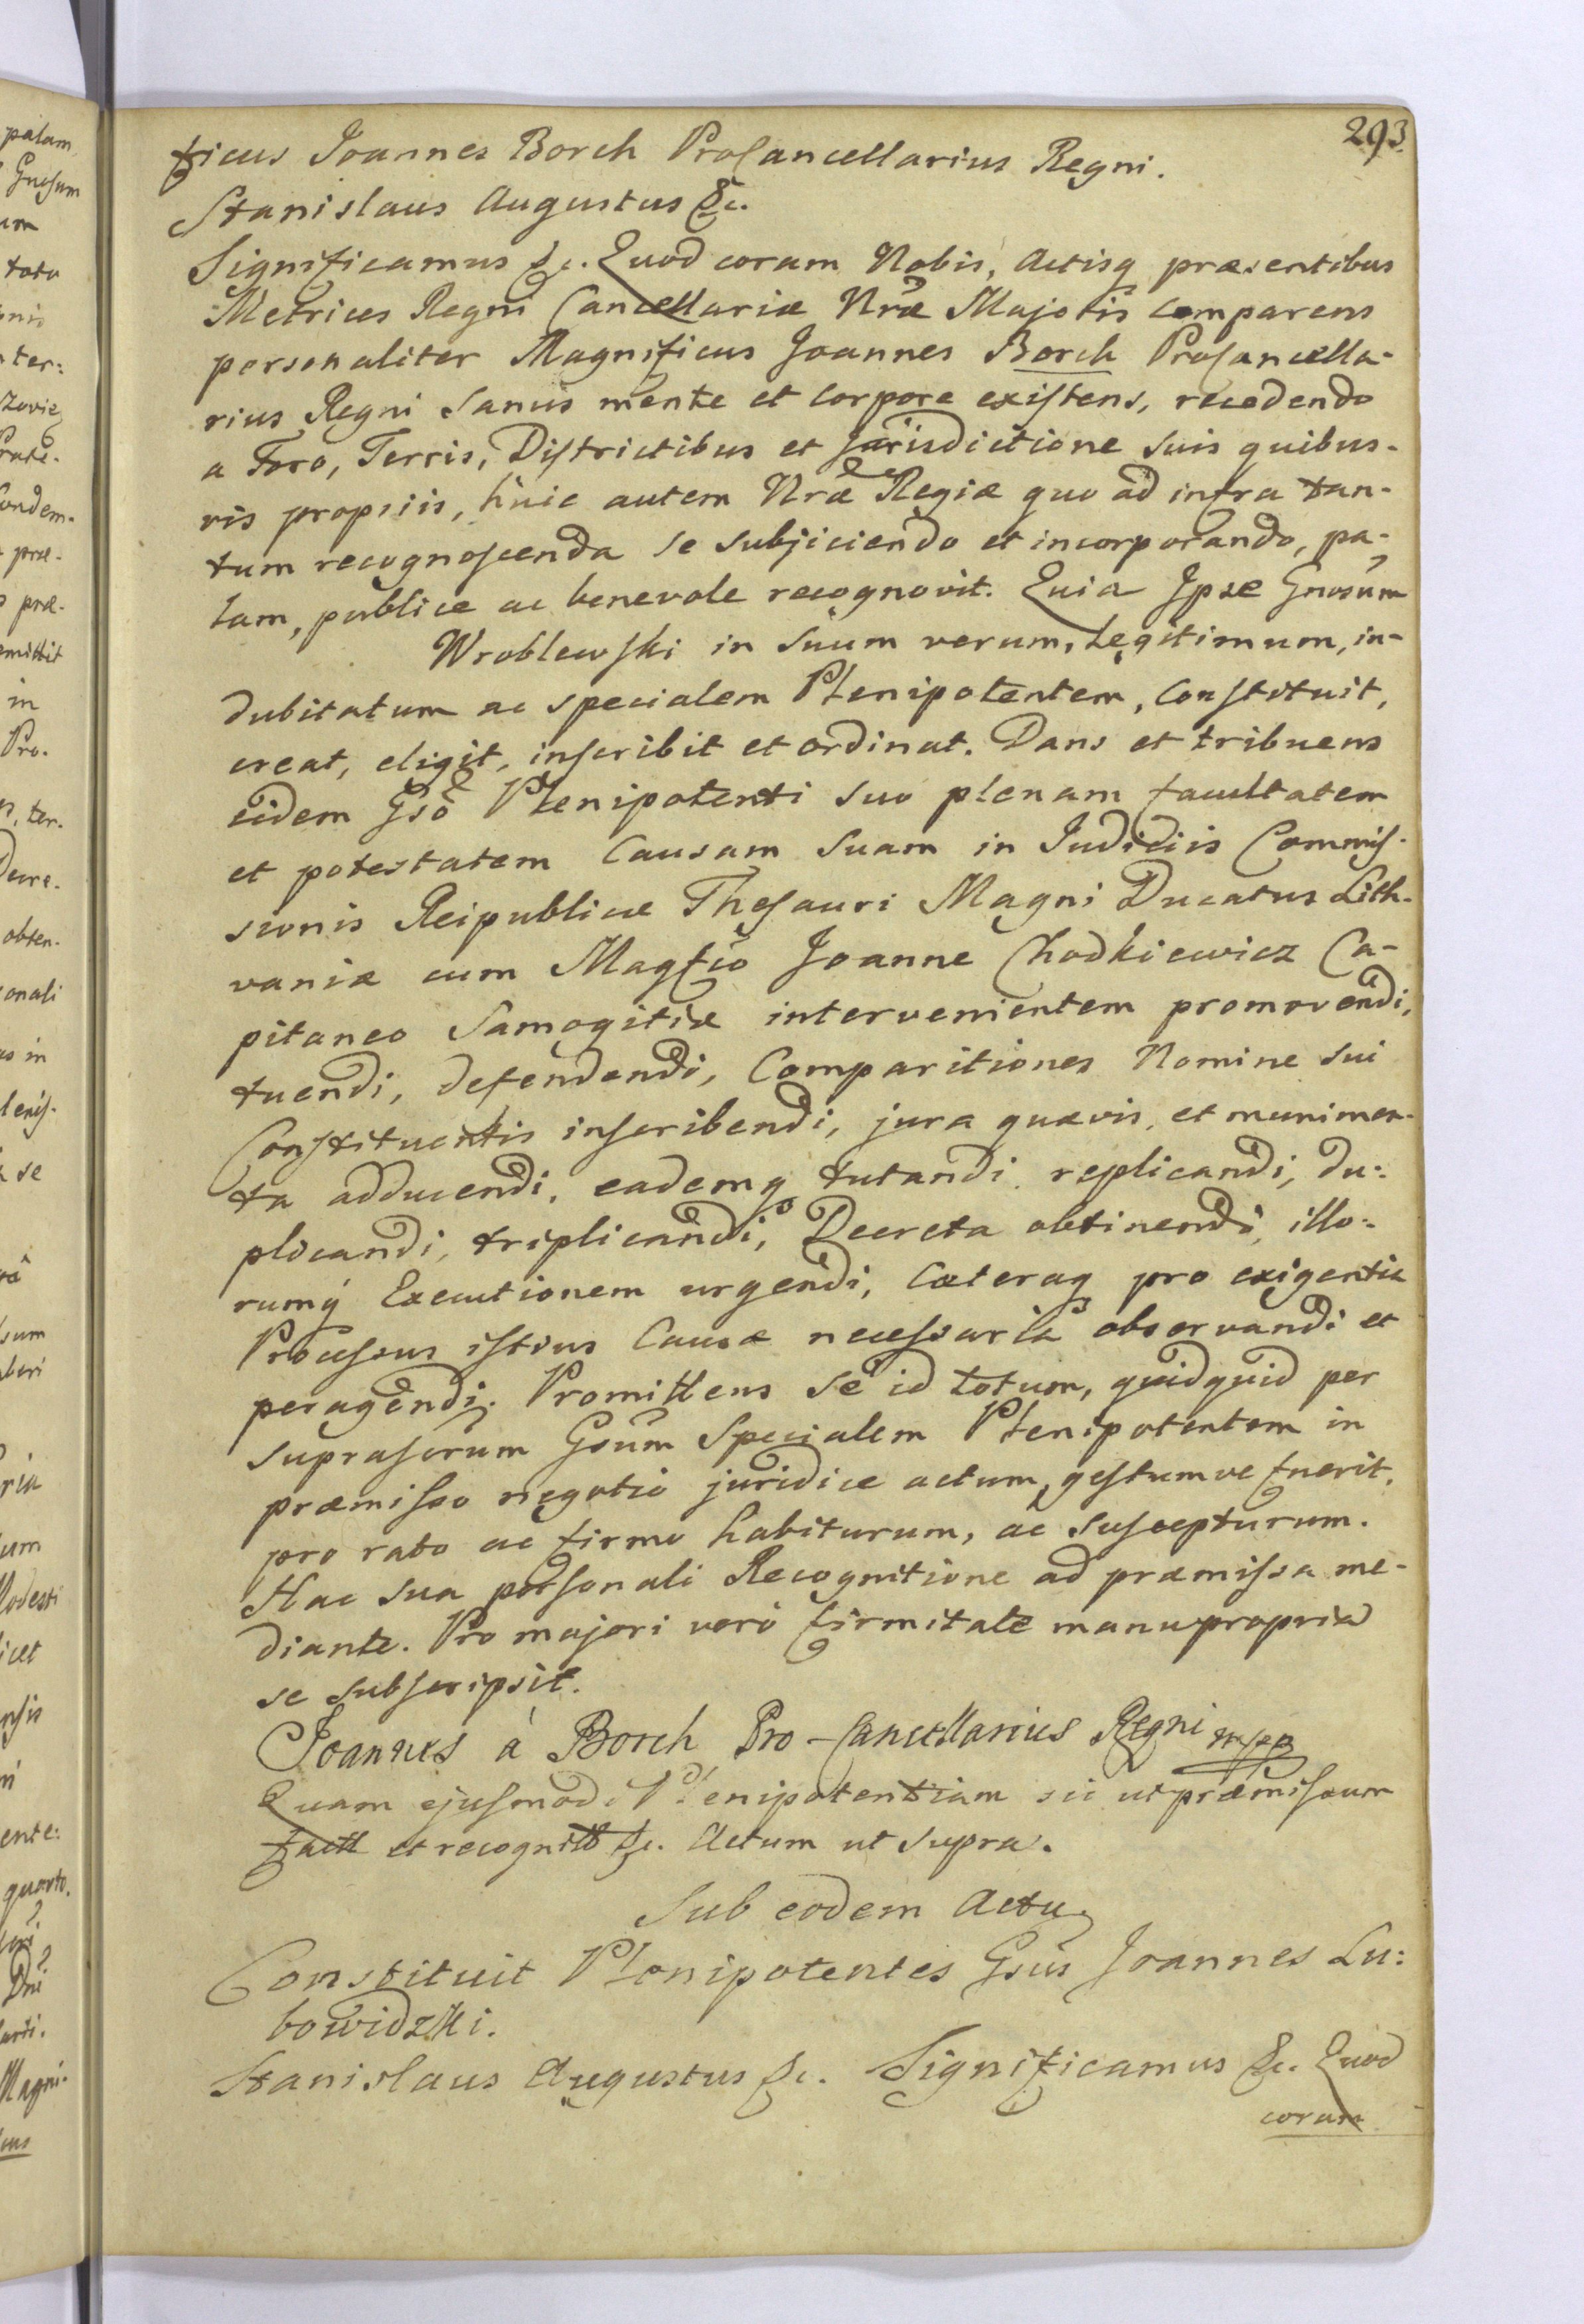 293.
ficus Joannes Borch ProCancellarius Regni.
Stanislaus Augustus &c.
Significamus &c. Quod coram Nobis, Actisq præsentibus
Metrices Regni Cancellariæ Nræ Majoris comparens
personaliter Magnificus Joannes Borch ProCancella-
rius Regni Sanus mente et Corpore existens, recedendo
a Foro, Terris, Districtibus et Jurisdictione Suis quibus-
vis propriis, huic autem Nræ Regiæ quo ad infra tan-
tum recognoscenda se subjiciendo et incorporando, pa-
lam, publice ac benevole recognovit. Quia Ipse Gnosum
Wroblewski in Suum verum, Legitimum, in-
dubitatum ac specialem Plenipotentem, Constituit,
creat, eligit, inscribit et ordinat. Dans et tribuens
eidem Gso Plenipotenti suo plenam facultatem
et potestatem Causam Suam in Judiciis Commis-
sionis Reipublicæ Thesauri Magni Ducatus Lith-
vaniæ cum Magfco Joanne Chodkiewicz Ca-
pitaneo Samogitiæ intervenientem promovendi,
tuendi, defendendi, Comparitiones Nomine Sui
Constituentis inscribendi, jura quævis, et munimen-
ta adducendi, eademq tutandi, replicandi, du-
plicandi, triplicandi, Decreta obtinendi, illo-
rumq Executionem urgendi, Cæteraq pro exigentia
Processus istius Causæ necessaria observandi et
peragendi. Promittens Se id totum, quidquid per
suprascrum Gsum Specialem Plenipotentem in
præmisso negotio juridice actum, gestumve fuerit,
pro rato ac firmo habiturum, ac Suscepturum.
Hac Sua personali Recognitione ad præmissa me-
diante. Pro majori verò firmitate manupropria
se subscripsit.
Joannes à Borch Pro-Cancellarius Regni mpp
Quam ejusmodi Plenipotentiam sic ut præmissum
factt et recognitt &c. Actum ut Supra.
Sub eodem Actu.
Constituit Plenipotentes Gsus Joannes Lu:
bowidzki.
Stanislaus Augustus &c. Significamus &c. Quod
coram